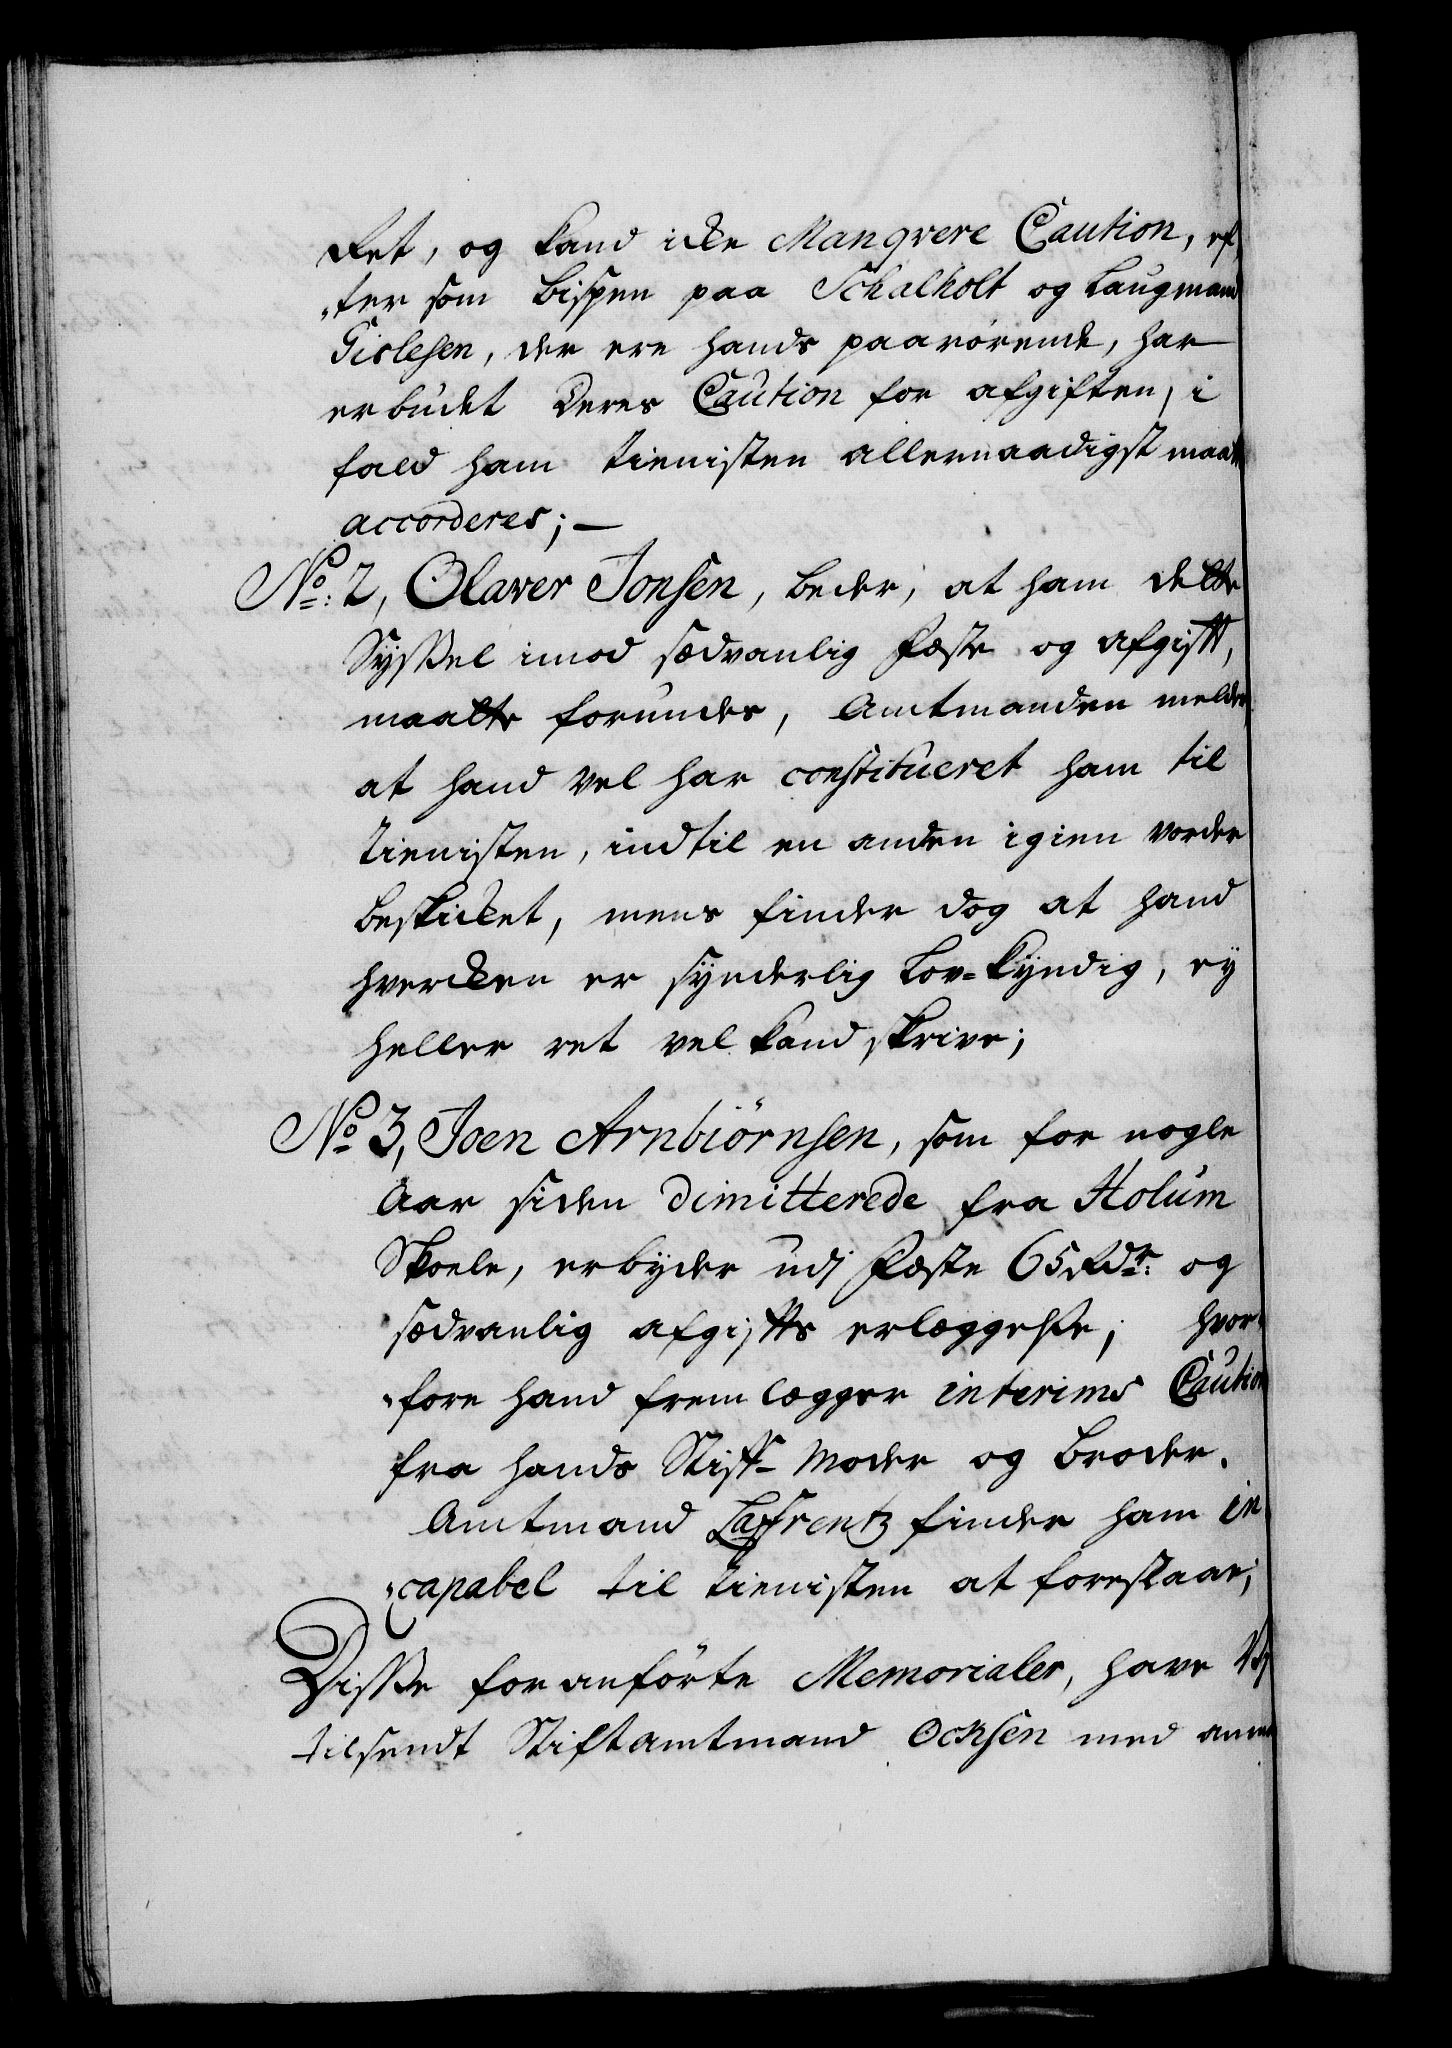 det, og kand icke Manqvere Caution, ef,,
,,ter som bispen paa Schalholt og Laugmand
Gislesen, der ere hands paarörende, har
erbudet deres Caution for afgiften, i
fald ham tienisten allernaadigst maatte
accorderes; —
No: 2, Olaver Jonsen, beder, at ham dette
Syssel imod sædvanlig Fæste og afgifft,
maatte forundes, Amtmanden melder
at hand vel har constitueret ham til
tienisten, indtil en anden igien vorder
beskicket, mens finder dog at hand
hvercken er synderlig Lov-kyndig, ey
heller ret vel kand skrive;
No 3, Joen Arnbiörnsen, som for nogle
Aar siden dimitterede fra Holum
Skoele, erbyder udj Fæste 65 Rdr: og
sædvanlig afgiffts erlæggelse; hvor,,
,,fore hand fremlægger interims Caution
fra hands Stiff-Moder og broder.
Amtmand Laffrentz finder ham in
,,capabel til tienisten at forestaae;
Disse foranförte Memorialer, have Vj
tilsendt Stiftamtmand Ocksen med anmo